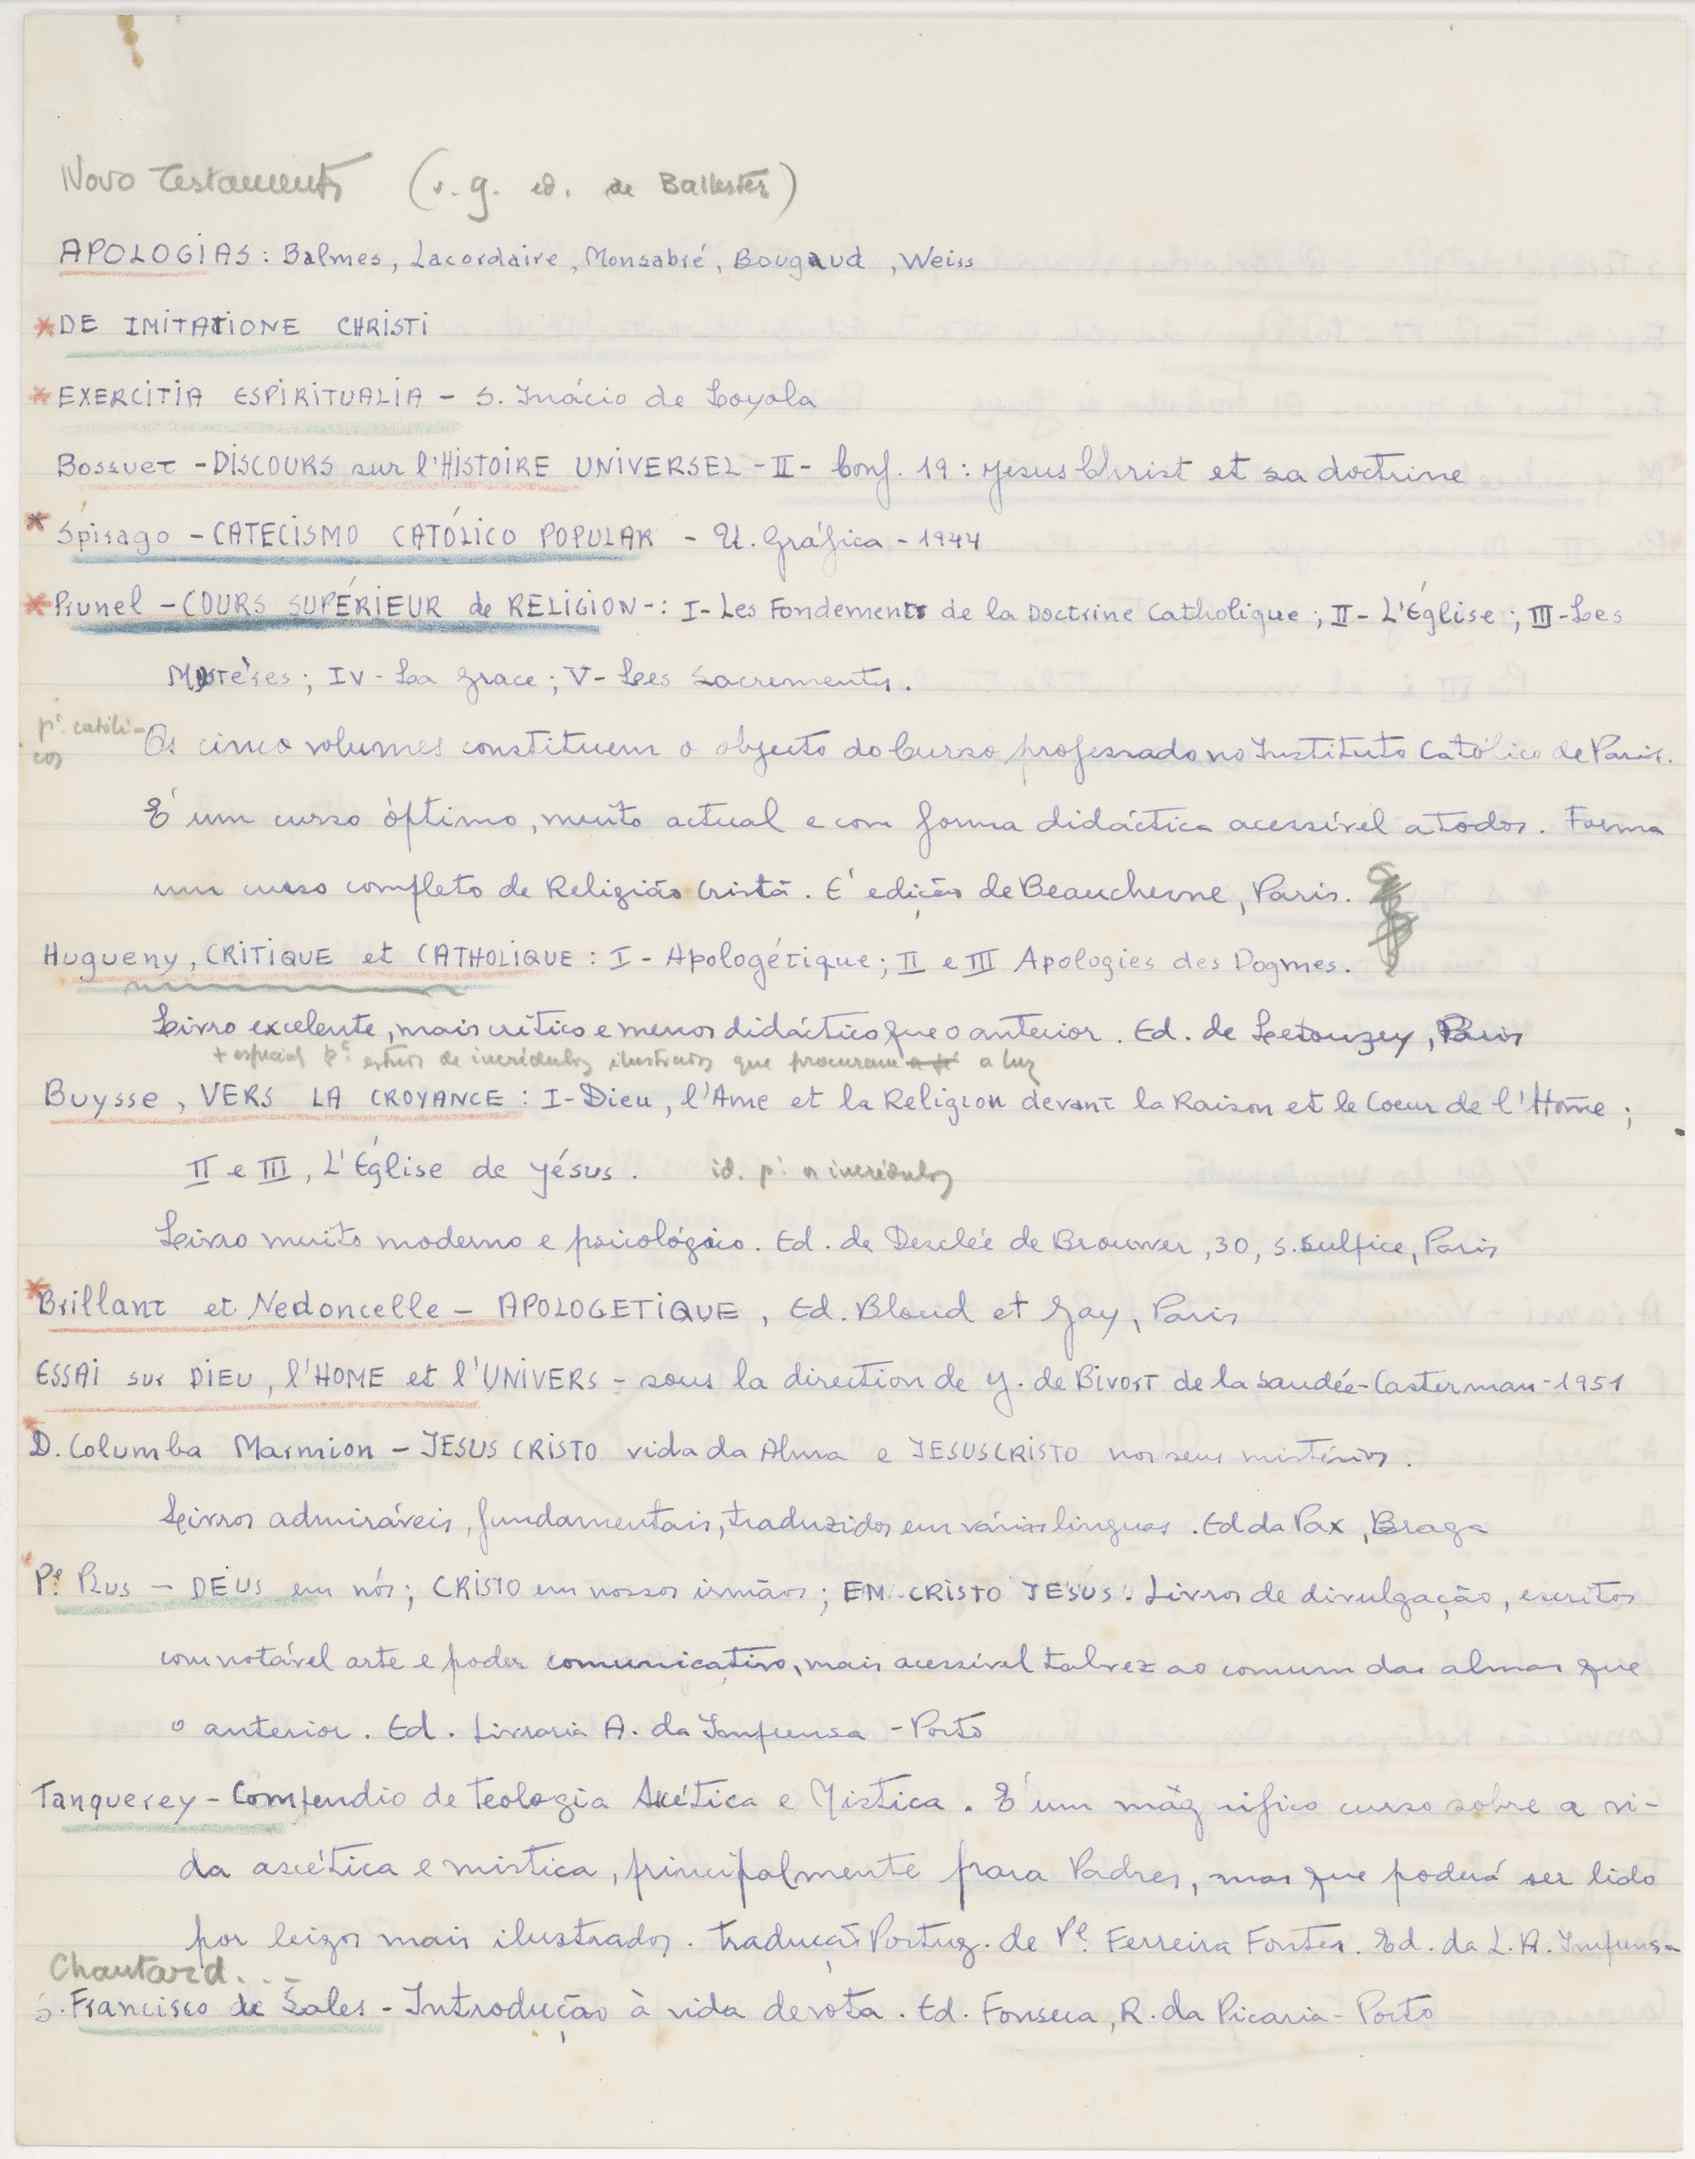 Novo Testamento (v.g. ed. de Ballester)
APOLOGIAS: Balmes, Lacordaire, Monsabré, Bougaud, Weiss
* DE IMITATIONE CHRISTI
* EXERCITIA ESPIRITUALIA - S. Inácio de Loyola
Bossuet - DISCOURS sur l'HISTOIRE UNIVERSEL - II - Conf. 19: Jesus Christ et sa doctrine
* Spirago - CATECISMO CATÓLICO POPULAR - U. Gráfica - 1944
* Prunel - COURS SUPÉRIEUR de RELIGION -: I - Les Fondements de la Doctrine Catholique; II - L'Église; III - Les
Mystéres; IV - La Grace; V - Les Sacrements.
pª católi-
cos
Os cinco volumes constituem o objecto do Curso professado no Instituto Católico de Paris.
É um curso óptimo, muito actual e com forma didáctica acessível a todos. Forma
um curso completo de Religião Cristã. É edição de Beauchesne, Paris.
Hugueny, CRITIQUE et CATHOLIQUE: I - Apologétique; II e III Apologies des Dogmes.
Livro excelente, mais crítico e menos didáctico que o anterior. Ed. de Letouzey, Paris
+ especial pª de incrédulos ilustrados que procuram a fé a luz
Buysse, VERS LA CROYANCE: I - Dieu, l'Ame et la Religion devant la Raison et le Coeur de l'Home;
II e III, L'Église de Jésus. id. pª os incrédulos
Livro muito moderno e psicológico. Ed. de Desclée de Brouwer, 30, S. Sulpice, Paris
* Brillant et Nedoncelle - APOLOGETIQUE, Ed. Bloud et Gay, Paris
ESSAI sur DIEU, l'HOME et l'UNIVERS - sous la direction de J. de Bivort de la Saudée - Casterman - 1951
* D. Columba Marmion - JESUS CRISTO vida da Alma e JESUS CRISTO nos seus mistérios.
Livros admiráveis, fundamentais, traduzidos em várias linguas. Ed da Pax, Braga
* Pe. Plus - DEUS em nós; CRISTO em nossos irmãos; EM CRISTO JESUS. Livros de divulgação, escritos
com notável arte e poder comunicativo, mais acessível talvez ao comum das almas que
o anterior. Ed. Livraria A. da Imprensa - Porto
Tanquerey - Compendio de Teologia Ascética e Mistica. É um magnifico curso sôbre a vi-
da ascética e mistica, principalmente para Padres, mas que poderá ser lido
por leigos mais ilustrados. Tradução Portug. de Pe. Ferreira Fontes. Ed. da L. A. Imprensa
Chautard...
S. Francisco de Sales - Introdução à vida devota. Ed. Fonseca, R. da Picaria - Porto